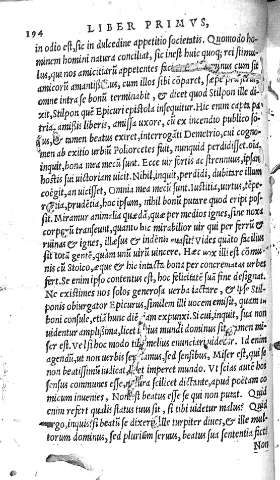 194 LIBER PRIMVS,
in odio est, sic in dulcedine appetitio societatis. Quomodo ho
minem homini natura conciliat, sic inest huic quoque rei stimu
lus, qui nos amicitiarũ appetentes faciat. cum sit
amicorũ amantissimus, cum illos sibi cõparet, sæpe
omne intra se bonũ terminabit, & dicet quod Stilpon ille di
xit, Stilpon quẽ Epicuri epistola insequitur. Hic enim capta pa
tria, amissis liberis, amissa uxore, cũ ex incendio publico so
lus, & tamen beatus exiret, interroganti Demetrio, cui cogno
men ab exitio urbiũ Poliorcetes fuit, nunquid perdidisset. oĩa,
inquit, bona mea mecũ sunt. Ecce uir fortis ac strennuus, ipsam
hostis sui uictoriam uicit. Nihil, inquit, perdidi, dubitare illum
coëgit, an uicisset. Omnia mea mecũ sunt. Iustitia, uirtus, tẽpe
rãtia, prudẽtia, hoc ipsum, nihil bonũ putare quod eripi pos
sit. Miramur animalia quædã, quæ per medios ignes, sine noxa
corporũ transeunt, quanto hic mirabilior uir qui per ferrũ &
ruinas & ignes, illæsus & indẽnis euasit? Vides quãto facilius
sit totã gentẽ, quàm unũ uirũ uincere. Hæc uox illi est cõmu-
nis cũ Stoico, æque & hic intacta bona per concrematas urbes
fert. Se enim ipso contentus est, hoc felicitatẽ suã fine designat.
Ne existimes nos solos generosa uerba iactare, & ipse Stil-
ponis obiurgator Epicurus, similem illi uocem emisit, quam tu
boni consule, etiã hunc diẽ iam expunxi. Si cui, inquit, sua non
uidentur amplissima, licet totius mundi dominus sit, tamen mi-
ser est. Vel si hoc modo tibi melius enunciari uidetur. Id enim
agendũ, ut non uerbis seruiamus, sed sensibus. Miser est, qui se
non beatissimũ iudicat, licet imperet mundo. Vt scias autẽ hos
sensus communes esse, natura scilicet dictante, apud poëtam co
micum inuenies, Non est beatus esse se qui non putat. Quid
enim refert qualis status tuus sit, si tibi uidetur malus? Quid
ergo, inquis, si beatũ se dixerit ille turpiter diues, & ille mul-
torum dominus, sed plurium seruus, beatus sua sententia fiet?
Non